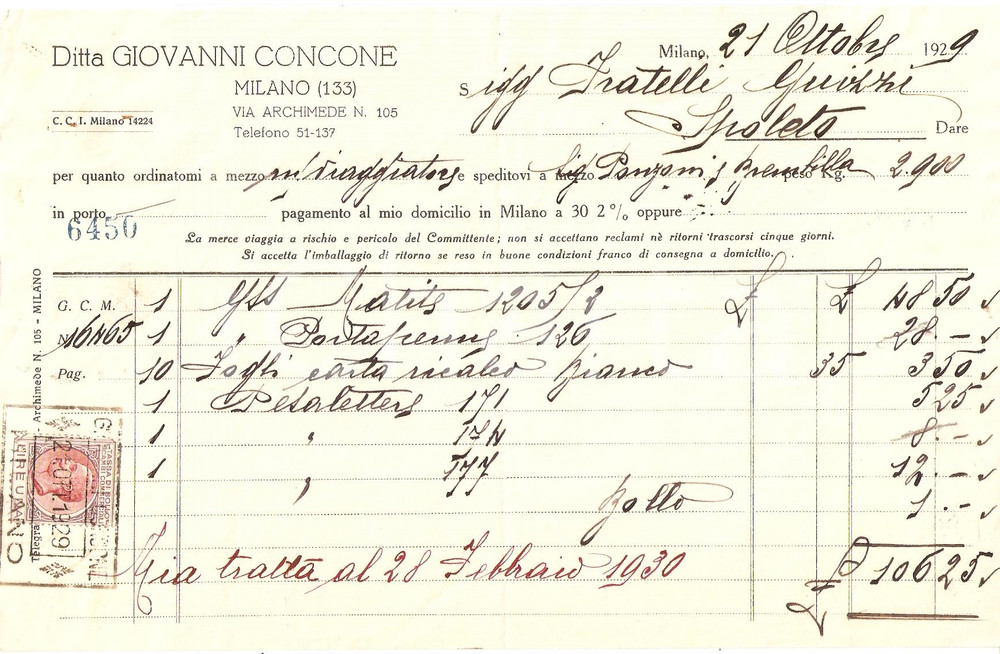 Ditta GIOVANNI CONCONE
MILANO (133)
VIA ARCHIMEDE N. 105
Telefono 51-137
C. C. I. Milano 14224
Milano, 21 Ottobre 1929
Sigg Fratelli Guizzi
Spoleto Dare
per quanto ordinatomi a mezzo m/ viaggiatore e speditovi a mezzo Sig Panzani, Brembilla peso Kg. 2.900
in porto pagamento al mio domicilio in Milano a 30 2% oppure
6450
La merce viaggia a rischio e pericolo del Committente; non si accettano reclami nè ritorni trascorsi cinque giorni.
Si accetta l'imballaggio di ritorno se reso in buone condizioni franco di consegna a domicilio.
G. C. M. 1 Matite 1205/2 £ £ 48 50
N. 16465 1 " Portapenne 126 28.-
Pag. 10 Fogli carta ricalco bianco 35 3 50
1 Pesalettere 171 5 25
1 " 174 8.-
1 " 177 12.-
Bollo 1.-
Mia tratta al 28 Febbraio 1930 £ 106 25
Archimede N. 105 - MILANO
Telegra
TASSA DI BOLLO
2-OTT.1929